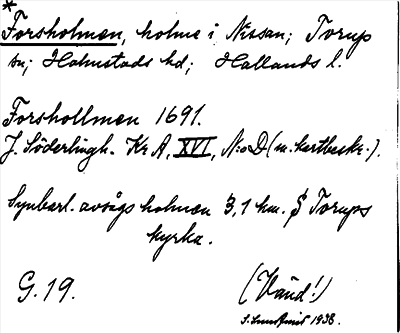 *
Forsholmen, holme i Nissan; Torup
sn; Halmstads hd; Hallands l.
Forshollmen 1691.
J. Söderlingh. Kr A, XVI, N:o D (m. kartbeskr.).
Synbarl. avságs holmen 3,1 km. S Torups
kyrka.
G. 19.
(Vänd!)
S. Lundqvist 1938.